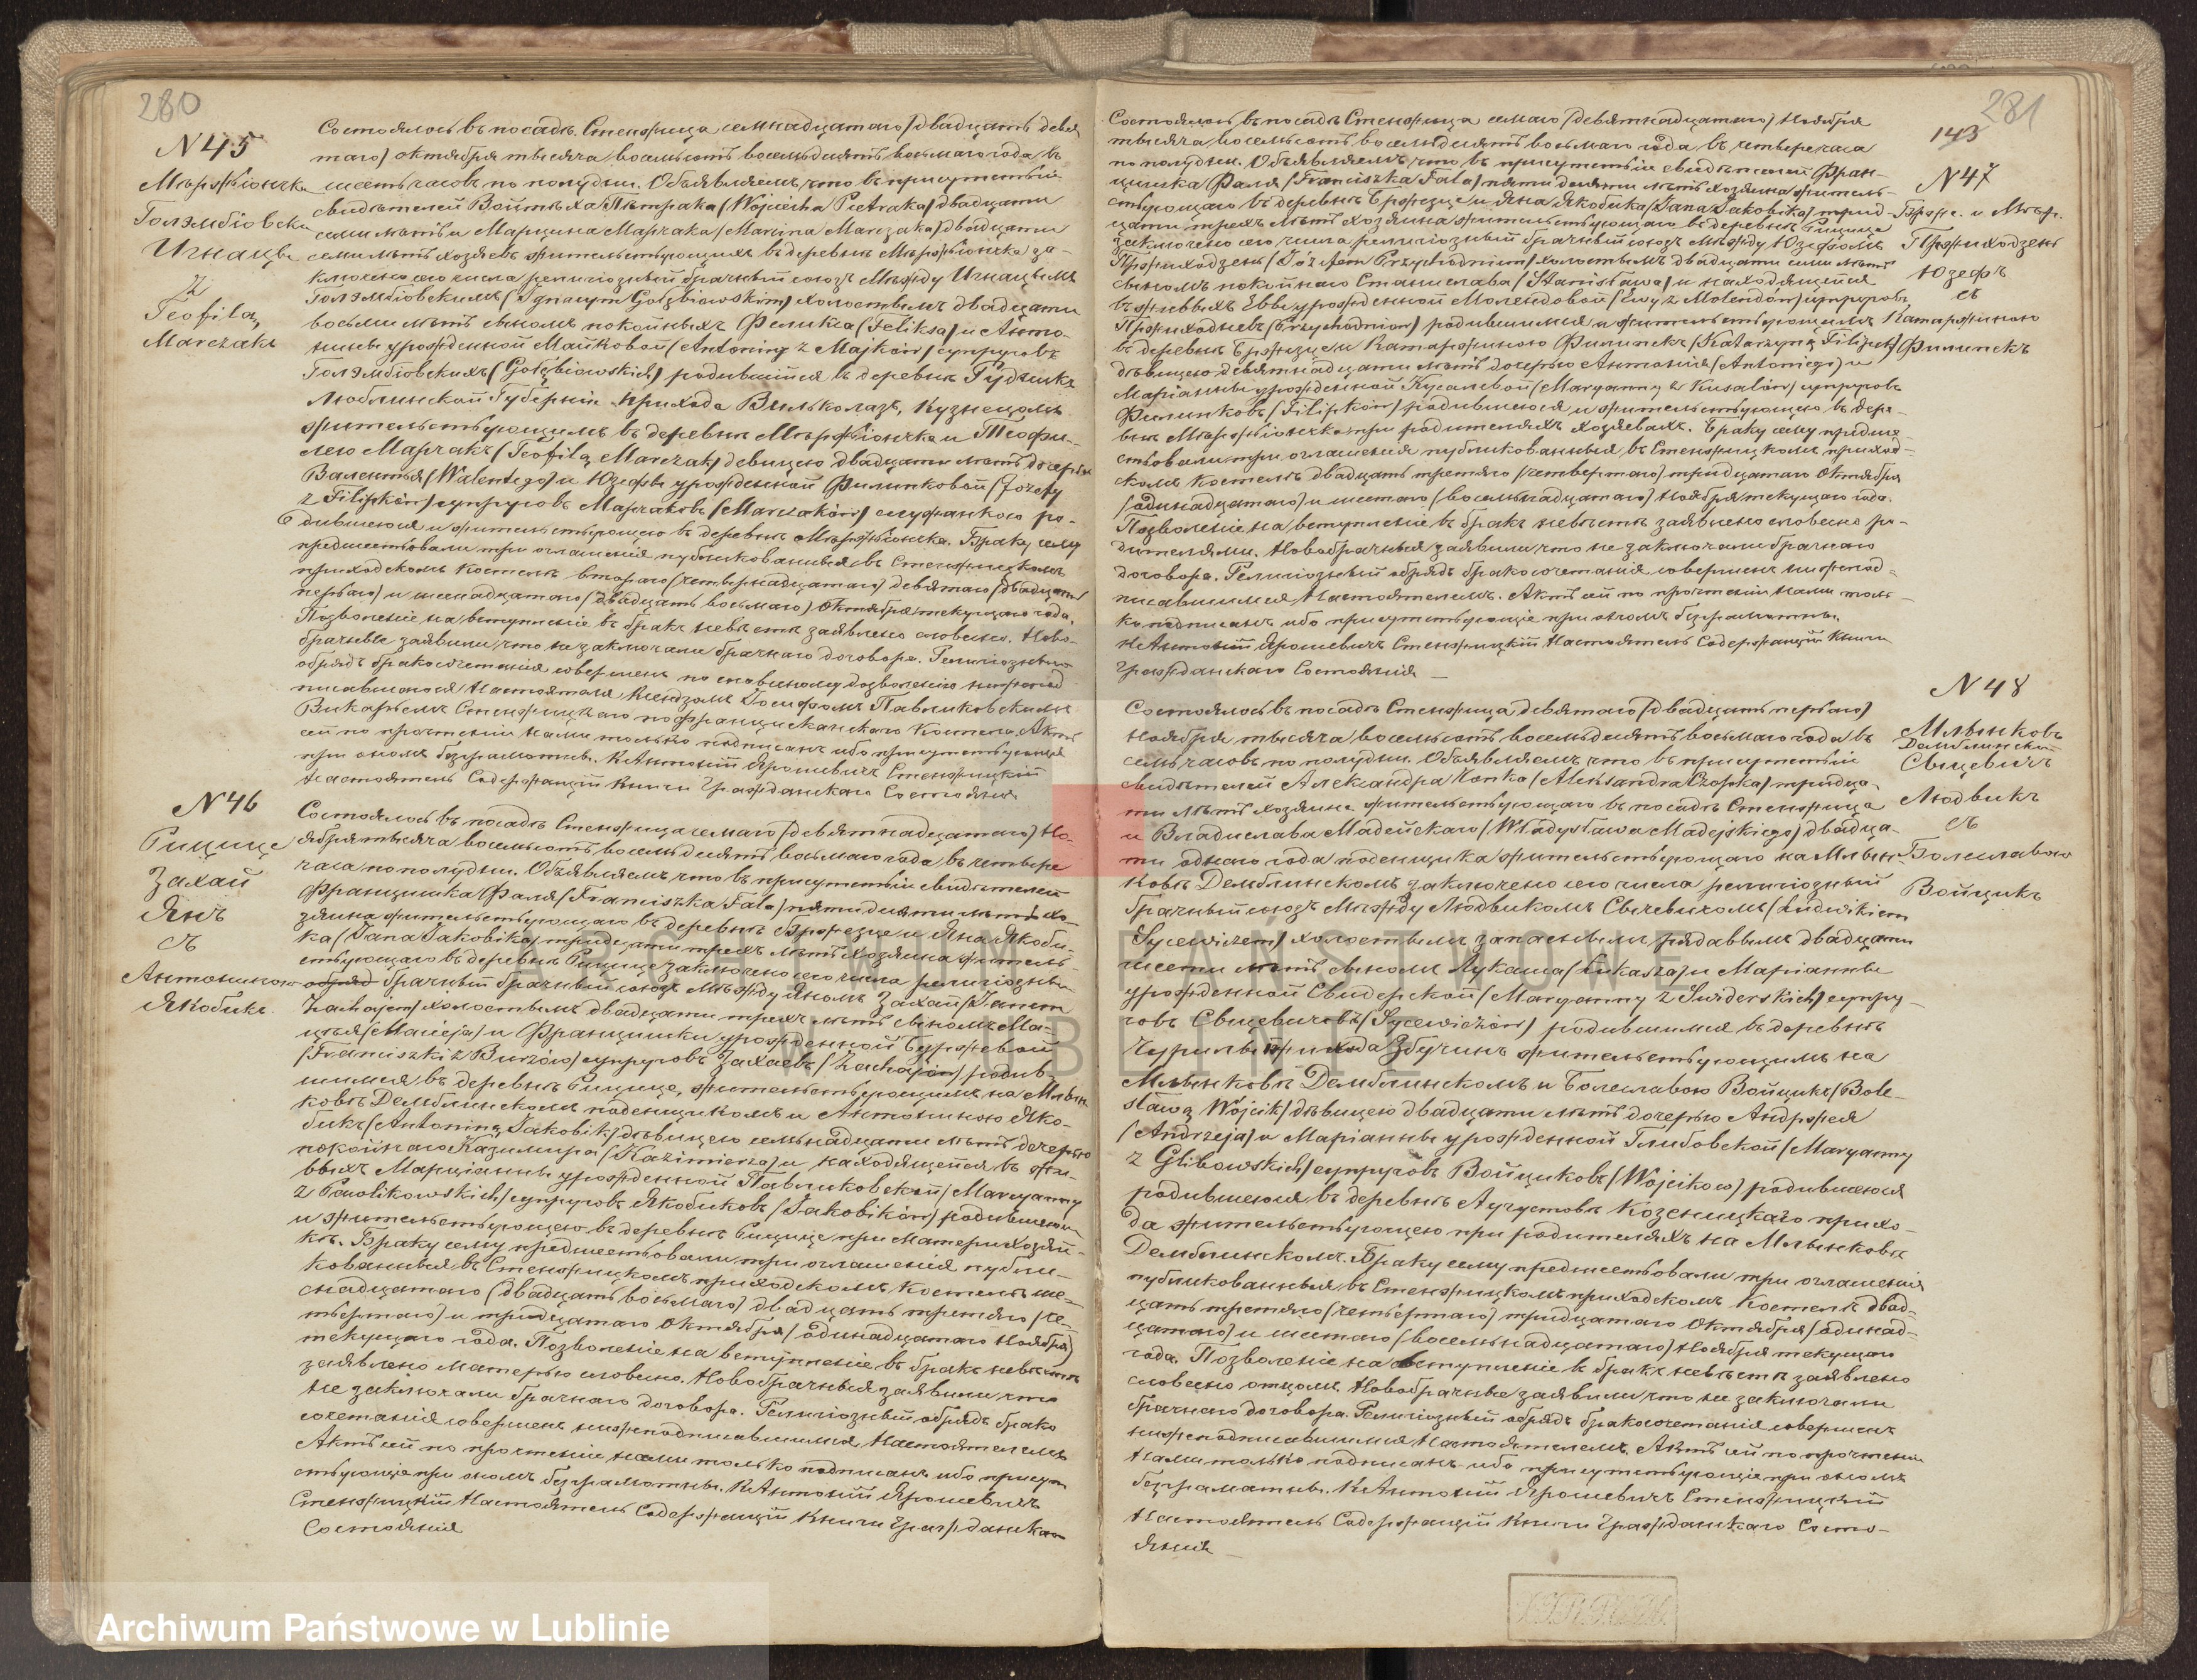 280
N 45
Мържвіончка
Голэмбіовски
Игнацы
z
Teofilą
Marczak
Состоялось въ посадѣ Стенжица семнадцатаго /двадцать девя-
таго/ Октября тысяча восемьсотъ восемьдесятъ восьмаго года въ
шесть часовъ по полудни. Объявляемъ, что въ присутствіи
свидѣтелей Войтѣха Пѣтрака /Wojciecha Pietraka/ двадцати
семи лѣтъ и Марцина Марчака /Marcina Marczaka/ двадцати
семи лѣтъ хозяевъ жительствующихъ въ деревнѣ за-
ключено сего числа религіозный брачный союзъ между Игнацымъ
Голэмбіовскимъ /Ignacym Gołębiowskim/ холостымъ двадцати
восьми лѣтъ сыномъ покойныхъ Феликса /Feliksa/ и Анто-
нины урожденной Майковой /Antoniny z Majków/ супруговъ
Голэмбіовскихъ /Gołębiowskich/ родившійся въ деревнѣ
Люблинской Губерніи прихода Вильколазъ, кузнецомъ
жительствующимъ въ деревнѣ и Теофи-
лею Марчакъ /Teofilą Marczak/ девицею двадцати лѣтъ дочерью
Валентія /Walentego/ и Юзефы урожденной Филипковой /Józefy
z Filipków/ супруговъ Марчаковъ /Marczaków/ служанкою ро-
дившеюся и жительствующею въ деревнѣ Браку сему
предшествовали три оглашенія публикованныя въ Стенжицкомъ
приходскомъ костелѣ втораго /четырнадцатаго/ девятаго /двадцать
перваго/ и шеснадцатаго /двадцать восьмаго/ Октября текущаго года.
Позволеніе на вступленіе въ бракъ невѣстѣ заявлено словесно. Ново-
брачные заявили что не заключали брачнаго договора. Религіозный
обрядъ бракосочетанія совершенъ по словесному дозволенію нижепод
писавшагося Настоятеля Ксендзомъ Іосифомъ Павликовскимъ
Викарымъ Стенжицкаго пофранцисканскаго Костела. Актъ
сей по прочтеніи нами только подписанъ ибо присутствующіе
при ономъ безграмотны. К Антоній Ярошевичъ Стенжицкій
Настоятель Содержащій Книги Гражданскаго Состоянія
N 46
Рицице
Захай
Янъ
съ
Антониною
Якобикъ
Состоялось въ посадѣ Стенжица седьмаго /девятнадцатаго/ Но-
ября тысяча восемьсотъ восемьдесятъ восьмаго года въ четыре
часа по полудни. Объявляемъ что въ присутствіи свидѣтелей
Францишка Фаля /Franciszka Fala/ пятидесяти лѣтъ хо-
зяина жительствующаго въ деревнѣ Бржезце и Яна Якоби-
ка /Jana Jakobika/ тридцати трехъ лѣтъ хозяина житель-
ствующаго въ деревнѣ Рицице заключено сего числа религіозный
обряд брачный брачный союзъ между Яномъ Захай /Janem
Zachajem/ холостымъ двадцати трехъ лѣтъ сыномъ Ма-
цѣя /Macieja/ и Францишки урожденной Буржевой
/Franciszki z Burzów/ супруговъ Захаевъ /Zachajów/ родив-
шимся въ деревнѣ Рицице, жительствующимъ на Млын-
ковѣ Демблинскомъ поденщикомъ и Антониною Яко-
бикъ /Antoniną Jakobik/ дѣвицею семьнадцати лѣтъ дочерью
покойнаго Казимира /Kazimierza/ и находящейся въ жи-
выхъ Марціанны урожденной Павликовской /Maryanny
z Pawlikowskich/ супруговъ Якобиковъ /Jakobików/ родившеюся
и жительствующею въ деревнѣ Рицице при матери хозяй-
кѣ. Браку сему предшествовали три оглашенія публи-
кованныя въ Стенжицкомъ приходскомъ костелѣ ше-
снадцатаго /двадцать восьмаго/ двадцать третяго /че-
твертаго/ и тридцатаго Октября /одинадцатаго Ноября/
текущаго года. Позволеніе на вступленіе въ бракъ невѣстѣ
заявлено матерью словесно. Новобрачныя заявили что
не заключали брачнаго договора. Религіозный обрядъ брако
сочетанія совершенъ нижеподписавшимся Настоятелемъ
Актъ сей по прочтеніе нами только подписанъ ибо присут
ствующіе при ономъ безграмотны. К Антоній Ярошевичъ
Стенжицкій Настоятель Содержащій Книги Гражданскаго
Состоянія
281
143
N 47
Брже. и Мърж.
Пржиходзень
Юзефъ
съ
Катаржиною
Филипекъ
Состоялось въ посадѣ Стенжица седмаго /девятнадцатаго/ Ноября
тысяча восемьсотъ восемьдесятъ восьмаго года въ четыре часа
по полудни. Объявляемъ что въ присутствіе свидѣтелей Фран-
цишка Фаля /Franciszka Fala/ пятидесяти лѣтъ хозяина житель-
ствующаго въ деревнѣ Бржезце и Яна Якобика /Jana Jakobika/ трид-
цати трехъ лѣтъ хозяина жительствующаго въ деревнѣ Рицице
заключено сего числа религіозный брачный союзъ между Юзефомъ
Пржиходзень /Józefem Przychodniem/ холостымъ двадцати семи лѣтъ
сыномъ покойнаго Станислава /Stanisława/ и находящейся
въ живыхъ Еввы урожденной Молендовой /Ewy z Molendów/ супруговъ
Пржиходневъ /Przychodniów/ родившимся и жительствующимъ
въ деревнѣ Бржезце и Катаржиною Филипекъ /Katarzyną Filipek/
дѣвицею девятнадцати лѣтъ дочерью Антонія /Antoniego/ и
Маріанны урожденной Кусалевой /Maryanny z Kusalów/ супруговъ
Филипковъ /Filipków/ родившеюся и жительствующею въ дере-
внѣ при родителяхъ хозяевахъ. Браку сему предше-
ствовали три оглашенія публикованныя въ Стенжицкомъ приход-
скомъ костелѣ двадцать третяго /четвертаго/ тридцатаго Октября
/одинадцатаго/ и шестаго /восемьнадцатаго/ Ноября текущаго года.
Позволеніе на вступленіе въ бракъ невѣстѣ заявлено словесно ро-
дителями. Новобрачныя заявили что не заключали брачнаго
договора. Религіозный обрядъ бракосочетанія совершенъ нижепод-
писавшимся Настоятелемъ. Актъ сей по прочтеніи нами толь-
ко подписанъ ибо присутствующіе при ономъ безграмотны.
К Антоній Ярошевичъ Стенжицкій Настоятель Содержащій Книги
Гражданскаго Состоянія
N 48
Млынковъ
Демблинскій
Свцевичъ
Людвикъ
съ
Болеславою
Войцикъ
Состоялось въ посадѣ Стенжица девятаго /двадцать перваго/
Ноября тысяча восемьсотъ восемьдесятъ восьмаго года въ
семь часовъ по полудни. Объявляемъ что въ присутствіи
свидѣтелей Александра /Aleksandra / тридца-
ти лѣтъ хозяина жительствующаго въ посадѣ Стенжица
и Владислава Мадейскаго /Władysława Madejskiego/ двадца-
ти одного года поденщика жительствующаго на Млын-
ковѣ Демблинскомъ заключено сего числа религіозный
брачный союзъ между Людвикомъ /Ludwikiem
Sycewiczem/ холостымъ запаснымъ рядовымъ двадцати
шести лѣтъ сыномъ Лукаша /Łukasza/ и Маріанны
урожденной Свидерской /Maryanny z Świderskich/ супру-
говъ Свцевичовъ /Sycewiczów/ родившимся въ деревнѣ
прихода Збучинъ жительствующимъ на
Млынковѣ Демблинскомъ и Болеславою Войцикъ /Bole-
sławą Wójcik/ дѣвицею двадцати лѣтъ дочерью Андржея
/Andrzeja/ и Маріанны урожденной Глибовской /Maryanny
z Glibowskich/ супруговъ Войциковъ /Wójcikow/ родившеюся
въ деревнѣ Августовъ Козеницкаго прихо-
да жительствующею при родителяхъ на Млынковѣ
Демблинскомъ. Браку сему предшествовали три оглашенія
публикованныя въ Стенжицкомъ приходскомъ костелѣ двад-
цать третяго /четвертаго/ тридцатаго Октября /одинад-
цатаго/ и шестаго /восемьнадцатаго/ Ноября текущаго
года. Позволеніе на вступленіе въ бракъ невѣстѣ заявлено
словесно отцомъ. Новобрачные заявили что не заключали
брачнаго договора. Религіозный обрядъ бракосочетанія совершенъ
нижеподписавшимся Настоятелемъ. Актъ сей по прочтеніи
нами только подписанъ ибо присутствующіе при ономъ
безграматны. К Антоній Ярошевичъ Стенжицкій
Настоятель Содержащій Книги Гражданскаго Состо-
янія
ARCHIWUM PAŃSTWOWE
W LUBLINIE
Archiwum Państwowe w Lublinie